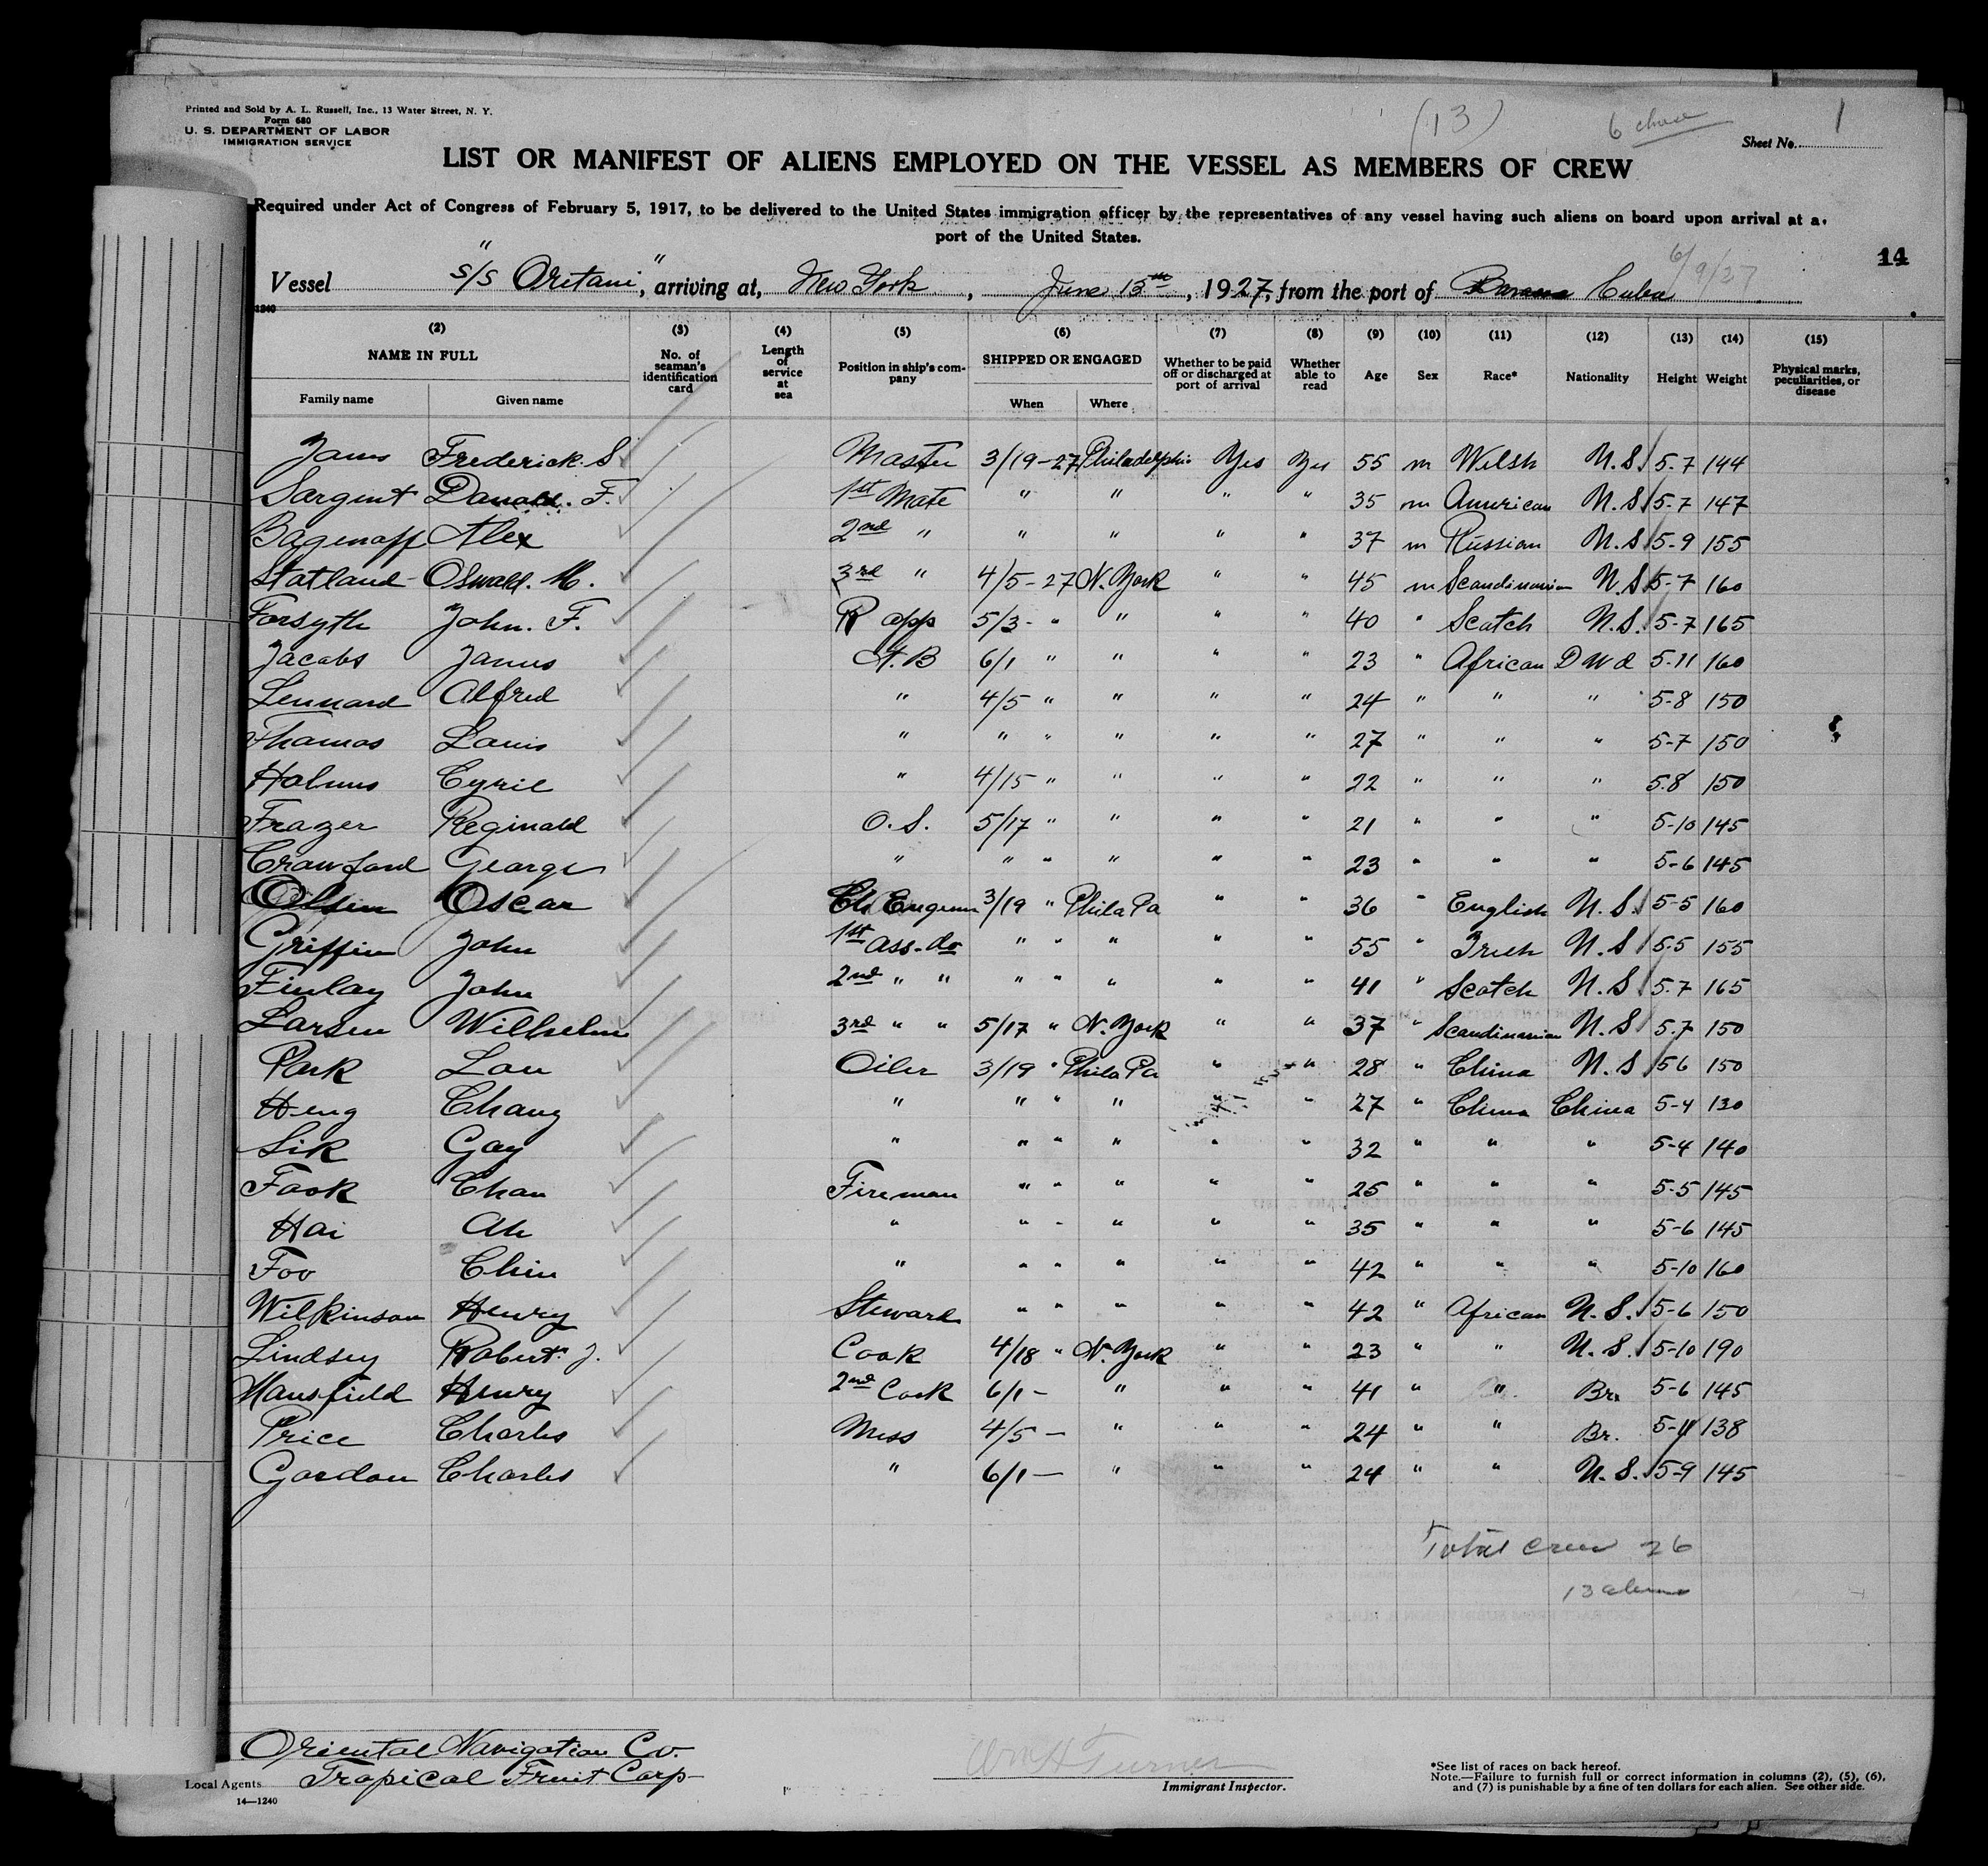 Printed and Sold by A. L. Russell, Inc., 13 Water Street, N. Y.
Form 680
U. S. DEPARTMENT OF LABOR
IMMIGRATION SERVICE
(13)
Sheet No. 1
LIST OR MANIFEST OF ALIENS EMPLOYED ON THE VESSEL AS MEMBERS OF CREW
Required under Act of Congress of February 5, 1917, to be delivered to the United States immigration officer by the representatives of any vessel having such aliens on board upon arrival at a
port of the United States.
14
6/9/27
Vessel "S/S Oritani", arriving at, New York, June 15th, 1927, from the port of Cuba
1240
(2) (3) (4) (5) (6) (7) (8) (9) (10) (11) (12) (13) (14) (15)
NAME IN FULL No. of seaman's identification card Length of service at sea Position in ship's company SHIPPED OR ENGAGED Whether to be paid off or discharged at port of arrival Whether able to read Age Sex Race* Nationality Height Weight Physical marks, peculiarities, or disease
Family name Given name When Where
Frederick. S Master 3/19-27 Philadelphia Yes Yes 55 m Welsh U.S. 5.7 144
Sargent F. 1st Mate " " " " 35 m American U.S 5-7 147
Bagenoff Alex 2nd " " " " " 37 m Russian U.S 5-9 155
Statland Oswald. M. 3rd " 4/5-27 N. York " " 45 m Scandinavian U.S 5-7 160
Forsyth John. F. 5/3- " " " " 40 " Scotch U.S. 5-7 165
Jacobs James A.B 6/1 " " " " 23 " African 5-11 160
Lennard Alfred " 4/5 " " " " 24 " " " 5-8 150
Thomas Louis " " " " " " 27 " " " 5-7 150
Holmes Cyril " 4/15 " " " " 22 " " " 5.8 150
Frazer Reginald O.S. 5/17 " " " " 21 " " " 5-10 145
Crawford George " " " " " " 23 " " " 5-6 145
Olsen Oscar Ch. Engineer 3/19 " Phila Pa " " 36 " English U.S. 5-5 160
Griffin John 1st Ass. do " " " " " 55 " Irish U.S 5.5 155
Finlay John 2nd " " " " " " " 41 " Scotch U.S 5.7 165
Larsen Wilhelm 3rd " " 5/17 " N. York " " 37 " Scandinavian U.S 5.7 150
Park Lou Oiler 3/19 " Phila Pa " " 28 " China U.S 56 150
Heng Chang " " " " " " 27 " China China 5-4 130
Sik Gay " " " " " " 32 " " " 5-4 140
Fook Chan Fireman " " " " " 25 " " " 5-5 145
Hai Ah " " " " " " 35 " " " 5-6 145
Foo Chin " " " " " " 42 " " " 5-10 160
Wilkinson Henry Steward " " " " " 42 " African U.S. 5-6 150
Lindsey Robert. J. Cook 4/18 " N. York " " 23 " " U.S. 5-10 190
Mansfield Henry 2nd Cook 6/1 - " " " 41 " " Br. 5-6 145
Price Charles Mess 4/5 - " " " 24 " " Br. 5-11 138
Gordon Charles " 6/1 - " " " 24 " " U.S. 5-9 145
Total Crew 26
13 aliens
Oriental Navigation Co.
Local Agents Tropical Fruit Corp
Wm H Turner
Immigrant Inspector.
14—1240
*See list of races on back hereof.
Note.—Failure to furnish full or correct information in columns (2), (5), (6),
and (7) is punishable by a fine of ten dollars for each alien. See other side.